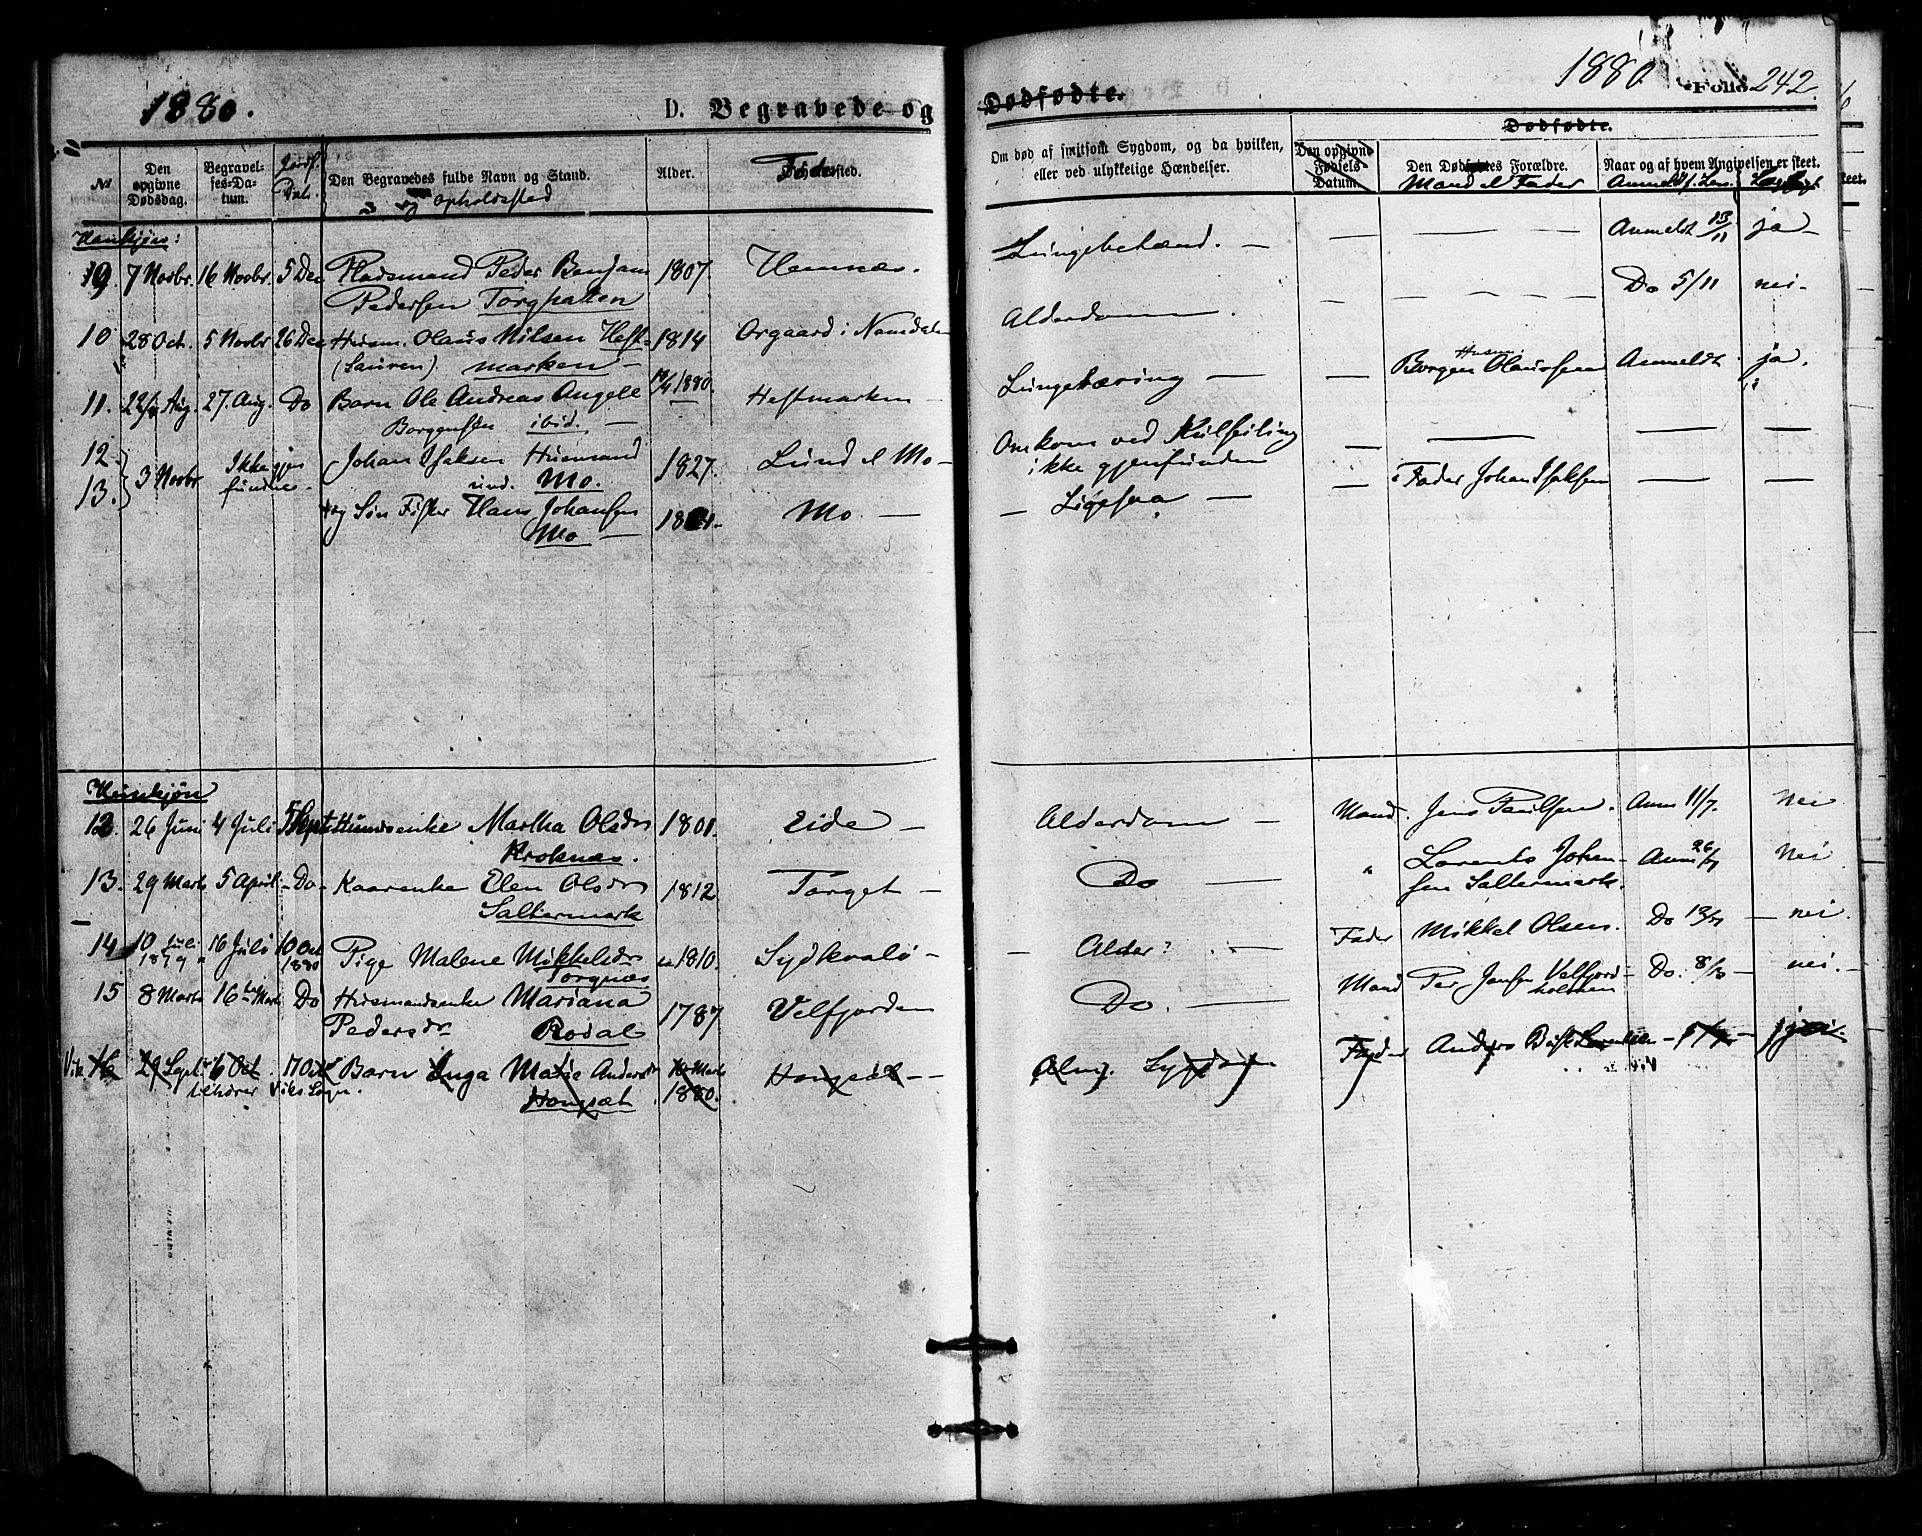 1880.
D. Begravede og
№
Den opgivne Dødsdag.
Begravelses-Datum.
Jordf. Dat.
Den Begravedes fulde Navn og Stand.
og Opholdssted
Alder.
Fødested.
Mankjøn:
9. 7 Novbr. 16 Novbr. 5 Dec Pladsmand Peder Benjam 1807. Hemnæs.
Pedersen Torghatten
10 28 Oct. 5 Novbr 26 Dec Husm. Olaus Nilsen Heft- 1814 Orgaard i Namdalen
(Sauren). marken
11. 22/ Aug. 27. Aug. Do Barn Ole Andreas Angell 1880. Heftmarken
Borgensen ibid. —
12. 3 Novbr Ikke gjen Johan Isaksen Husmand 1827. Lund el Mo
13. fundne und. Mo.
og Søn Fisker Hans Johansen Mo —
Mo —
Kvinkjøn
12. 26 Juni 4 Juli 5 Sept Husmdsenke Martha Olsdr 1801. Eide —
Kroknæs.
13. 29 Marts 5 April - Do - Kaarenke Elen Olsdr 1812 Torget —
Saltermark
14 10 Juli 16 Juli 10 Oct Pige Malene Mikkelsdr 1810. Sydkvalø -
1879 1880 Torgnæs
15 8 Marts 16 Marts Do Husmandsenke Mariana 1787 Velfjorden
Pedersdr Rodal
Vik 16 29 Sept. 6 Oct. 17 Oct Barn Inga Marie Andersdr Marts Hongsæt —
tilhører Viks Sogn. Hongsæt 1880.
1880
Folio 242
Dødfødte.
Om død af smitsom Sygdom, og da hvilken,
eller ved ulykkelige Hændelser.
Dødfødte.
Den opgivne Fødsels Datum.
Den Dødfødtes Forældre.
Mand el Fader
Naar og af hvem Angivelsen er skeet.
Anmeldt f. Lens.
Lungebetænd. — Anmeldt 13/11 ja
— — — Do 5/11 nei.
Alderdom.
Husm.
Lungetæring — — Borgen Olaussen Anmeldt ja.
Omkom ved Kulseiling — — — —
ikke gjenfunden
— Ligesaa — — Fader Johan Isaksen — —
Alderdom — Mand. Jens Paulsen. Anm 11/7. nei
Do — " Lorents Johan- Anm 26/ nei
sen Saltermark.
— Alder? — Fader Mikkel Olsen. Do 13/ — nei.
Do. — Mand Per Jensen Velfjord- Do. 8/ — nei.
holmen
Alm. Sygdom Fader Anders Busk Lorentsen